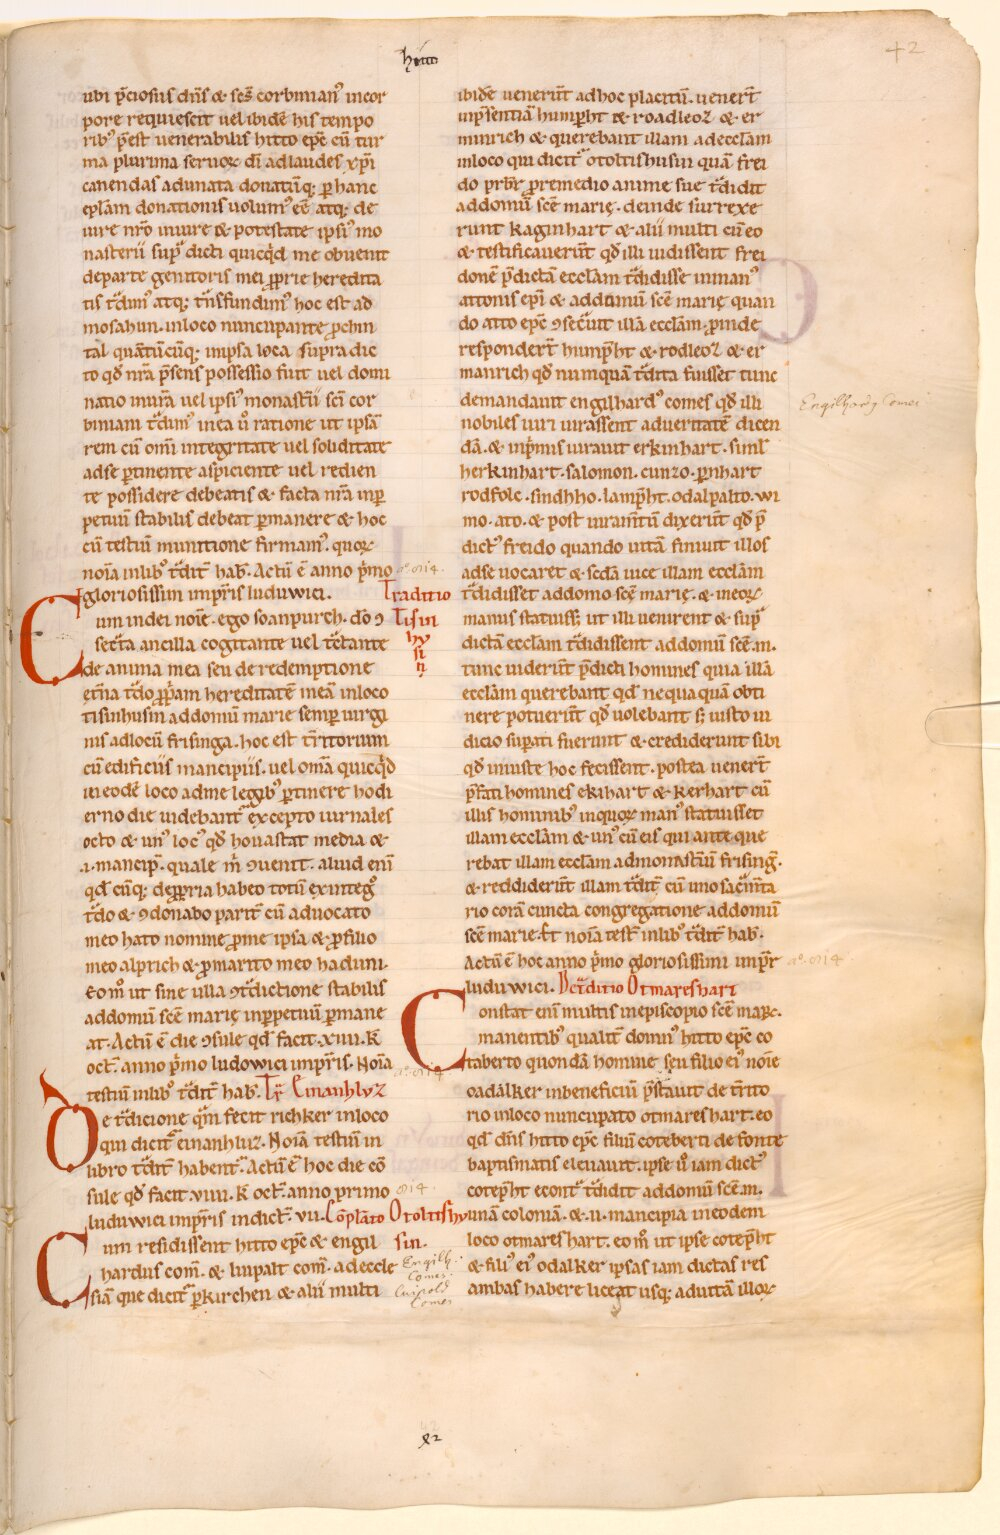 hitto
42
ubi p̄ciosus dn̄s & sc̄s corbinianꝰ incor
pore requiescit vel ibidē his tempo
ribꝰ p̄est venerabilis hitto ep̄c cū tur
ma plurima servoꝝ dī ad laudes xp̄i
canendas adunata donatūq; ꝑ hanc
ep̄lam donationis volumꝰ eē atq; de
iure nr̄o in iure & potestate ipsiꝰ mo
nasterii sup̄ dicti quicq̄d me obvenit
de parte genitoris mei ꝓprie heredita
tis t̄dimꝰ atq; tn̄sfundimꝰ hoc est ad
mosahun. in loco nuncupante ꝓchin
tal quātūcūq; in ipsa loca supra dic
to qd̄ nr̄a p̄sens possessio fuit vel domi
natio in iura vel ipsiꝰ monastīi sc̄i cor
biniani t̄dimꝰ in ea v̊ ratione ut ipsā
rem cū om̄i integritate vel soliditate
ad se ꝑtinente aspiciente vel redien
te possidere debeatis & facta nr̄a inꝑ
petuū stabilis debeat ꝑmanere & hoc
cū testiū munitione firmamꝰ. quoꝝ
noīa in libꝰ t̄dit̄ hab̄. Actū ē anno p̄mo
aº. 814.
gloriosissimi imp̄ris luduwici.
Traditio
Tisin
hu
si
n̄
Cum in dei noīe. ego soanpurch. dō ꝯ
secrāta ancilla cogitante vel t̄ctante
de anima mea seu de redemptione
et̄na t̄do ꝓp̄am hereditatē meā in loco
tisinhusin ad domū marie semꝑ virgi
nis ad locū frisinga. hoc est t̄ritorium
cū edificiis mancipiis. vel om̄a quicq̄d
in eodē loco ad me legibꝰ ꝑtinere hodi
erno die videbant̄ excepto iurnales
octo & unꝰ locꝰ qd̄ hovastat media &
.i. mancip̄. quale m̄ ꝯvenit. aliud enī
qd̄ cūq; de ꝓpria habeo totū ex integ̊
t̄do & ꝯdonabo parit̄ cū advocato
meo hato nomine ꝓ me ipsa & ꝓ filio
meo alprich & ꝓ marito meo haduni.
Eom̊ ut sine ulla ꝯt̄dictione stabilis
ad domū scē marię in ꝑpetuū ꝑmane
at. Actū ē die ꝯsule qd̄ facit .xiiii. K̄
oct̄. anno p̄mo ludowici imp̄ris. Noīa
aº. 814.
testiū in libꝰ t̄dit̄ hab̄. Tr̄ Einanhluz
De t̄dicione q̄m fecit richker in loco
qui dicit̄ einanhluz. Noīa testiū in
libro t̄dit̄ habent̄. Actū ē hoc die cō
sule qd̄ facit .viiii. K̄ oct̄. anno primo
814.
luduwici imp̄ris indict̄. vii. Cōplāto Otoltishu
sin.
Cum residissent hitto ep̄c & engil
hardus com̄. & liupalt com̄. ad eccle
siā que dicit̄ ꝑkirchen & alii multi
Engilh.
Comes.
Luipold
Comes
ibidē venerūt ad hoc placitū. venert̄
in p̄sentiā humꝑht & roadleoz & er
minrich & querebant illam adecclam
in loco qui dicit̄ otoltishusin quā frei
do prb̄r ꝓ remedio anime sue t̄didit
ad domū scē marię. deinde surrexe
runt kaginhart & alii multi cū eo
& testificaverūt qd̄ illi vidissent frei
donē p̄dictā ecclam t̄didisse in manꝰ
attonis ep̄i & ad domū scē marię quan
do atto ep̄c ꝯsec̄vit illā ecclam. ꝓinde
respondert̄ humꝑht & rodleoz & er
manrich qd̄ numquā t̄dita fuisset tunc
demandavit engilhardꝰ comes qd̄ illi
Engilhard9 Comes
nobiles viri iurassent ad veritatē dicen
dā. & inp̄mis iuravit erkinhart. simł
herkinhart. salomon. cunzo. ꝑnhart
rodfolc. sindhho. lamꝑht. odalpalto. wi
mo. ato. & post iuramtū dixerūt qd̄ p̄
dictꝰ freido quando vitā finivit illos
ad se vocaret & scd̄a vice illam ecclām
t̄didisset ad domo scē marię. & in eoꝝ
manus statuiss; ut illi venirent & sup̄
dictā ecclam t̄didissent ad domū scē .m.
tunc viderūt p̄dicti homines quia illā
ecclam querebant qd̄ nequaquā obti
nere potuerūt qd̄ volebant s; iusto iu
dicio suꝑati fuerunt & crediderunt sibi
qd̄ iniuste hoc fecissent. postea venert̄
p̄fati homines ekihart & kerhart cū
illis hominibꝰ in quoꝝ manꝰ statuisset
illam ecclām & unꝰ cū eis qui ante que
rebat illam ecclām ad monastīū frising̃.
& reddiderūt illam t̄dit̄ cū uno sac̄mta
rio corā cuncta congregatione ad domū
scē marie. Et noīa test̄ in libꝰ t̄dit̄ hab̄.
Actū ē hoc anno p̄mo gloriosissimi imp̄r
aº. 814.
luduwici. De t̄ditio Otmareshart
Constat enī multis in episcopio scē maꝝ.
manentibꝰ qualit̄ domnꝰ hitto ep̄c co
taberto quondā homine seu filio eiꝰ noīe
oadalker in beneficiū p̄stavit de t̄rito
rio in loco nuncupato otmareshart. eo
qd̄ dn̄s hitto ep̄c filiū coteberti de fonte
baptismatis elevavit. ipse v̊ iam dictꝰ
coteꝑht econt̄ t̄didit ad domū scē .m.
unā coloniā. & .ii. mancipia in eodem
loco otmareshart. eom̊ ut ipse coteꝑht
& filiꝰ eiꝰ odalker ipsas iam dictas res
ambas habere liceat usq; ad vitā illoꝝ
42